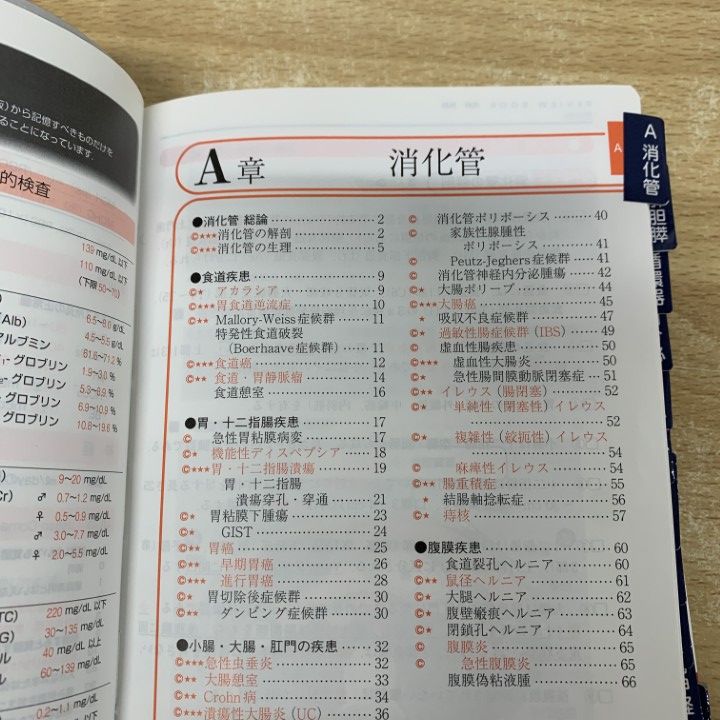 から記憶すべきものだけを
ることになっています.
的検査
139 mg/dL 以下
110 mg/dL 以下
(下限50〜70)
6.5〜8.0 g/dL
Alb)
4.5〜5.5 g/dL
アルブミン
61.6〜71.2 %
グロブリン
1.9〜3.0 %
グロブリン
5.3〜8.9 %
グロブリン
6.9〜10.9 %
グロブリン
10.8〜19.6 %
9〜20 mg/dL
Cr)
♂ 0.7〜1.2 mg/dL
♀ 0.5〜0.9 mg/dL
♂ 3.0〜7.7 mg/dL
♀ 2.0〜5.5 mg/dL
TC)
220 mg/dL 以下
G)
30〜135 mg/dL
40 mg/dL 以上
60〜139 mg/dL
0.2〜1.1 mg/dL
A章 消化管
●消化管 総論 2
©★★★消化管の解剖 2
©★★★消化管の生理 5
●食道疾患 9
©★ アカラシア 9
©★★★胃食道逆流症 10
©★★ Mallory-Weiss症候群 11
特発性食道破裂
(Boerhaave症候群) 11
©★★★食道癌 12
©★★ 食道・胃静脈瘤 14
食道憩室 16
●胃・十二指腸疾患 17
© 急性胃粘膜病変 17
©★ 機能性ディスペプシア 18
©★★★胃・十二指腸潰瘍 19
胃・十二指腸
潰瘍穿孔・穿通 21
©★ 胃粘膜下腫瘍 23
©★ GIST 24
©★★ 胃癌 25
©★★ 早期胃癌 26
©★★★ 進行胃癌 28
©★ 胃切除後症候群 30
©★★ ダンピング症候群 30
●小腸・大腸・肛門の疾患 32
©★★★急性虫垂炎 32
©★★ 大腸憩室 33
©★★★Crohn病 34
©★★★潰瘍性大腸炎(UC) 36
© 消化管ポリポーシス 40
© 家族性腺腫性
ポリポーシス 41
© Peutz-Jeghers症候群 41
© 消化管神経内分泌腫瘍 42
©★ 大腸ポリープ 44
©★★★大腸癌 45
★ 吸収不良症候群 47
©★ 過敏性腸症候群(IBS) 49
© 虚血性腸疾患 50
©★★★ 虚血性大腸炎 50
©★ 急性腸間膜動脈閉塞症 51
©★★ イレウス(腸閉塞) 52
©★ 単純性(閉塞性)イレウス
52
©★ 複雑性(絞扼性)イレウス
54
© 麻痺性イレウス 54
©★★ 腸重積症 55
★ 結腸軸捻転症 56
©★ 痔核 57
●腹膜疾患 60
© 食道裂孔ヘルニア 60
©★★ 鼠径ヘルニア 61
©★ 大腿ヘルニア 62
©★ 腹壁瘢痕ヘルニア 63
©★ 閉鎖孔ヘルニア 64
© 腹膜炎 65
© 急性腹膜炎 65
腹膜偽粘液腫 66
A
A 消化管
胆膵
循環器